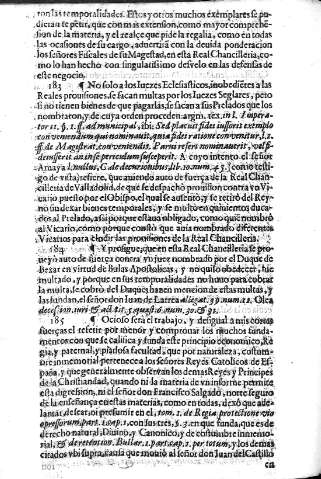 con las temporalidades. Estos y otros muchos exemplares se pu-
dieran repetir, que con mas extension, como mayor comprehe-
sion de la materia, y el realçe que pide la regalia, como en todas
las ocasiones de su cargo, aduertirà con la deuida ponderacion
los señores Fiscales de su Magestad, en esta Real Chancilleria, co-
mo lo han hecho con singularissimo desvelo en las defensas de
este negocio.
183 ¶ No solo a los Iuezes Eclesiasticos, inobedientes a las
Reales prouisiones, se sacan multas por los Iuezes Seglares, pero
si no tienen bienes de que pagarlas, se sacan a sus Prelados que los
nombraron, y de cuya orden proceden argum. tex. in l. Impera-
tor
ff. de Magistrat. conveniendis.
denserit an in se periculum susceperit. A cuyo intento el señor
Amaya
go de vista) refiere, que auiendo auto de fuerça de la Real Chan-
cilleria de Valladolid, de que se despachò prouision contra vn Vi-
cario puesto por el Obispo, el qual se ausentò, y se retirò del Rey-
no sin dexar bienes temporales, y se multò en quinientos duca-
dos al Prelado, assi porque estaua obligado, como que nombrò
al Vicario, como porque constò que auia nombrado diferentes
Vicarios para eludir las prouisiones de la Real Chancilleria.
184 ¶ Y prosigue, que en esta Real Chancilleria se pro-
ueyò auto de fuerça contra vn juez nombrado por el Duque de
Bezar en virtud de Bulas Apostolicas, y no quiso obedecer, fue
multado, y porque en sus temporalidades no huuo para cobrar
la multa, se cobrò del Duque; hazen mencion de estas multas, y
las fundan, el señor don Iuan de Larrea allegat. 39. num. 22. Olea
de cession. iuri & act. tit. 5. quæst. 6. num. 30. & 31.
185 ¶ Ocioso serà el trabajo, y desigual a mis cortas
fuerças el referir por menor y comprouar los muchos funda-
mentos con que se califica y funda este principio economico, Re-
gia, y paternal, y piadosa facultad, que por naturaleza, costum-
bre inmemorial pertenece a los señores Reyes Catolicos de Es-
paña, y que generalmente obseruan los demas Reyes y Principes
de la Christiandad, quando ni la materia de vn informe permite
esta digresion, ni el señor don Francisco Salgado, norte seguro
de la enseñança en estas materias, como en todas, dexò que ade-
lantar, desear, ni presumir en el, tom. 1. de Regia protectione vio
oppressorum, part. 1. cap. 1. con sus tres, §. §. en que funda, que es de
derecho natural, Diuino, y Canonico, y de costumbre inmemo-
rial, & de retention. Bullar. 1. part. cap. 1. per totum, y los demas
citados vbi supra, causa que mouiò al señor don Iuan del Castillo
en